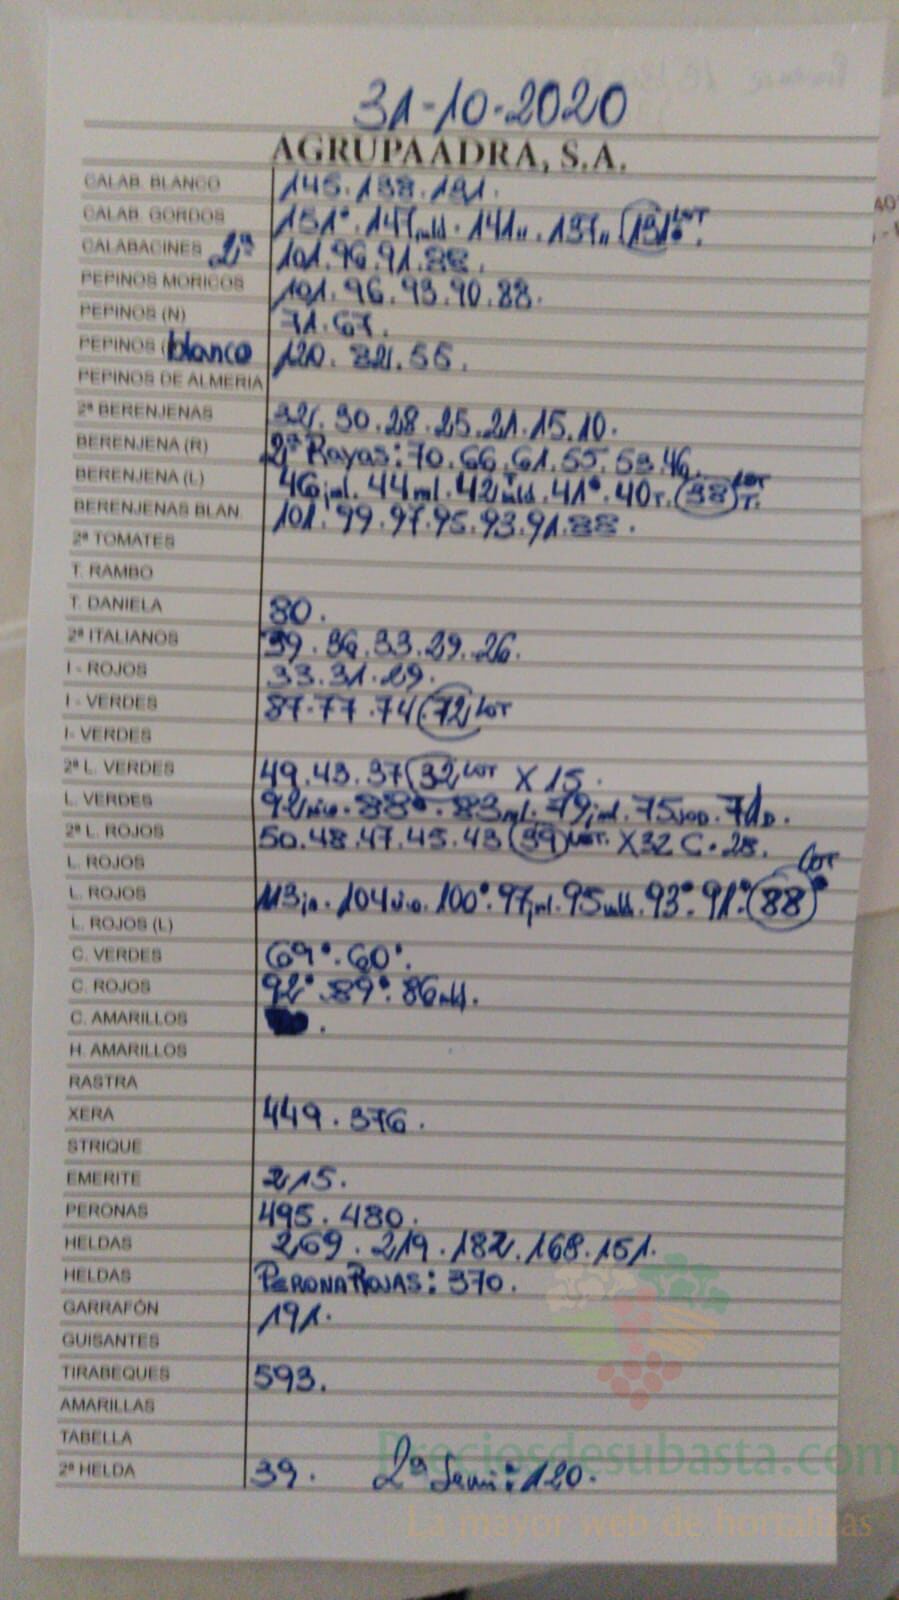 31-10-2020
AGRUPAADRA, S.A.
CALAB. BLANCO 145. 138. 131.
CALAB. GORDOS 151°. 147 mld. 141 ıı. 137 ıı 131° LOT.
CALABACINES 2ª 101. 96. 91. 88.
PEPINOS MORICOS 101. 96. 93. 90. 88.
PEPINOS (N) 71. 67.
PEPINOS (blanco 120. 82. 55.
PEPINOS DE ALMERIA
2ª BERENJENAS 32. 30. 28. 25. 21. 15. 10.
BERENJENA (R) 2ª Rayas: 70. 66. 61. 55. 53. 46.
BERENJENA (L) 46 jml. 44 ml. 42 mld. 41°. 40 T. 38 LOT T.
BERENJENAS BLAN. 101. 99. 97. 95. 93. 91. 88.
2ª TOMATES
T. RAMBO
T. DANIELA 80.
2ª ITALIANOS 39. 36. 33. 29. 26.
I - ROJOS 33. 31. 29.
I - VERDES 87. 77. 74. 72 LOT
I- VERDES
2ª L. VERDES 49. 43. 37 32 LOT X 15.
L. VERDES 92 vio. 88°. 83 ml. 79 jml. 75 JOD. 71 D.
2ª L. ROJOS 50. 48. 47. 45. 43 39 LOT. X32 C. 28.
L. ROJOS
L. ROJOS 113 ja. 104 vio. 100°. 97 jml. 95 mld. 93°. 91°. 88° LOT
L. ROJOS (L)
C. VERDES 69°. 60°.
C. ROJOS 92°. 89°. 86 mld.
C. AMARILLOS
H. AMARILLOS
RASTRA
XERA 449. 376.
STRIQUE
EMERITE 215.
PERONAS 495. 480.
HELDAS 269. 219. 182. 168. 151.
HELDAS PERONA ROJAS: 370.
GARRAFÓN 191.
GUISANTES
TIRABEQUES 593.
AMARILLAS
TABELLA
2ª HELDA 39. 2ª Semi: 120.
Preciosdesubasta.com
La mayor web de hortalizas